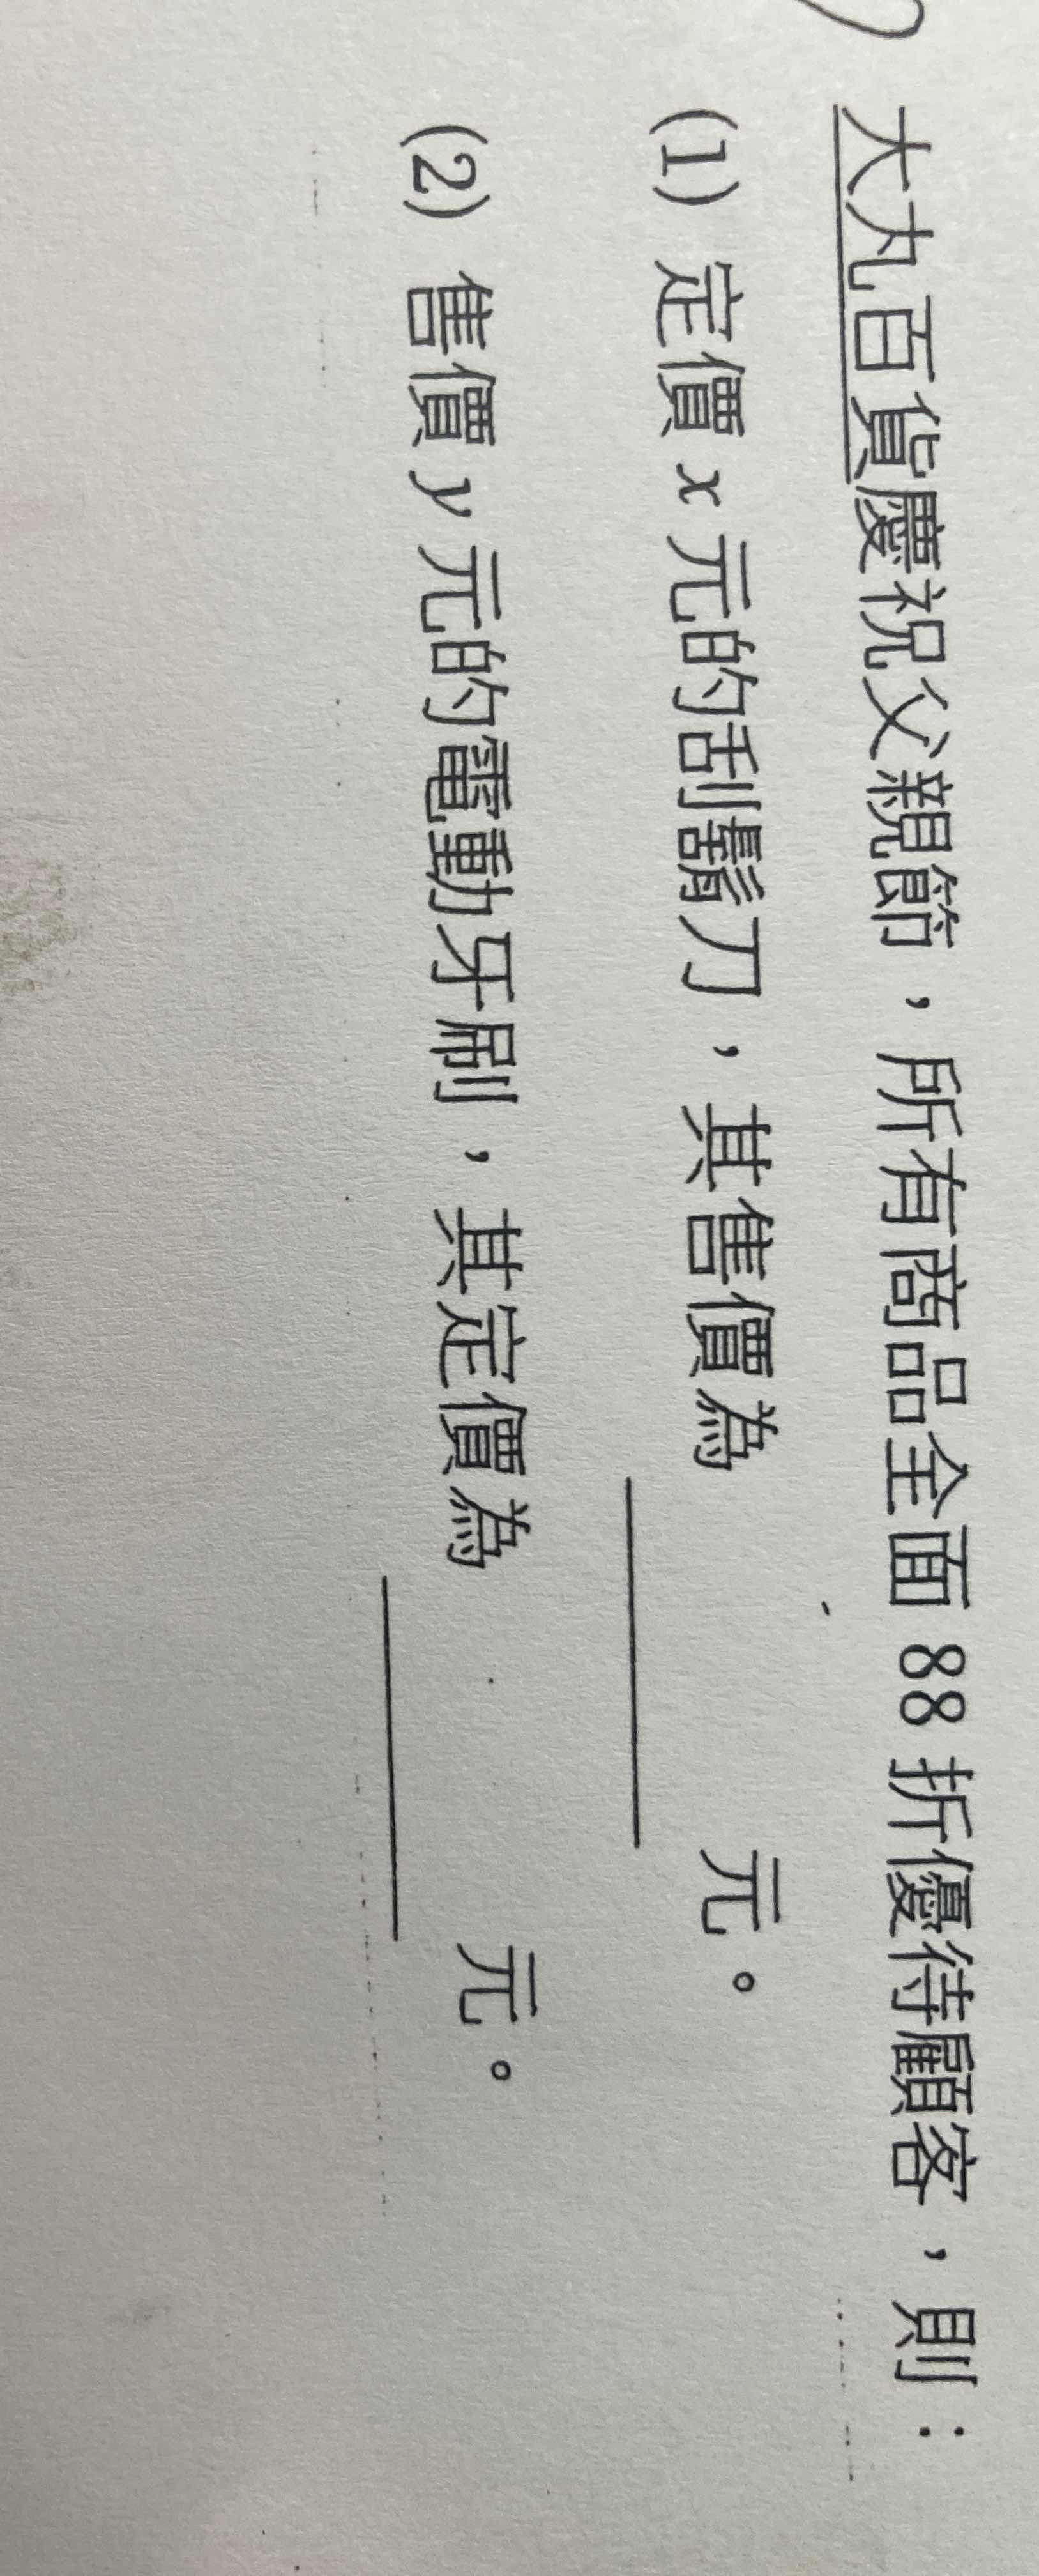 大丸百貨慶祝父親節，所有商品全面 88 折優待顧客，則：
(1) 定價 x 元的刮鬍刀，其售價為＿＿＿＿元。
(2) 售價 y 元的電動牙刷，其定價為＿＿＿＿元。